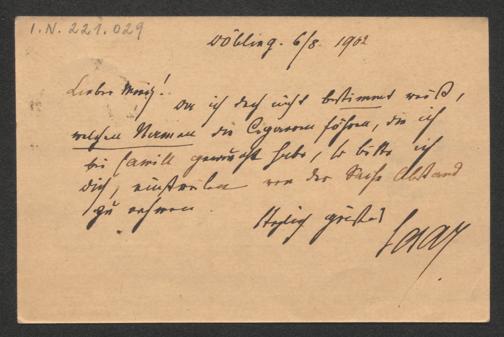 I.N. 221.029
Döbling. 6/8. 1902
Lieber Moriz!
Da ich doch nicht bestimmt weiß,
welchen Namen die Cigarren führen, die ich
bei Camill geraucht habe, so bitte ich
Dich, einstweilen von der Sache Abstand
zu nehmen.
Herzlich grüßend
Saar